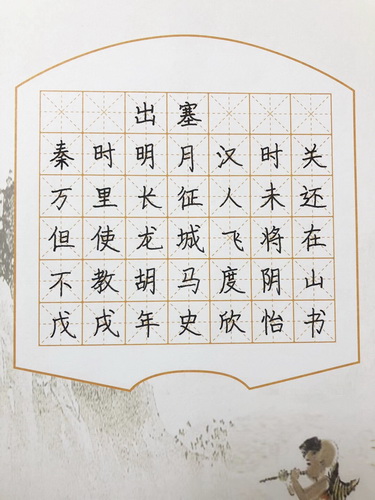 出塞
秦时明月汉时关
万里长征人未还
但使龙城飞将在
不教胡马度阴山
戊戌年史欣怡书